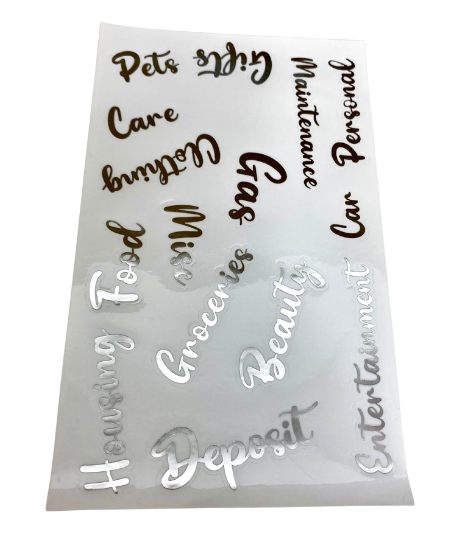 Pets
Gifts
Care
Clothing
Gas
Maintenance
Personal
Car
Misc
Food
Groceries
Beauty
Housing
Deposit
Entertainment